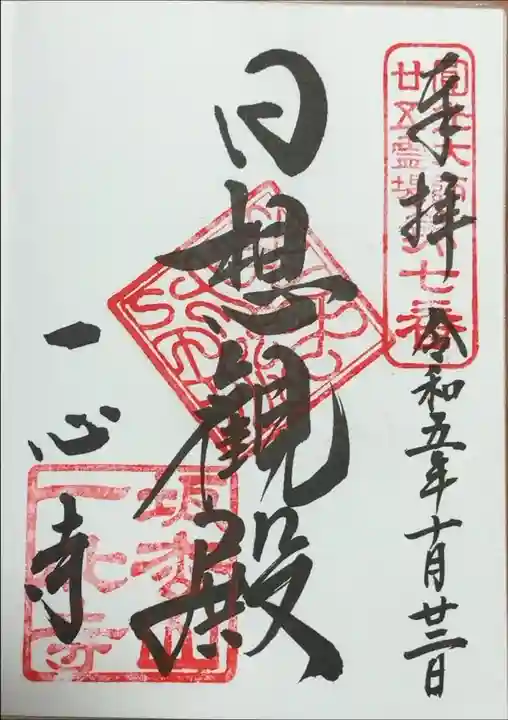 奉拝 令和五年十月廿三日
圓光大師
廿五霊場第七番
日想観殿
一心寺
坂松山
一心寺